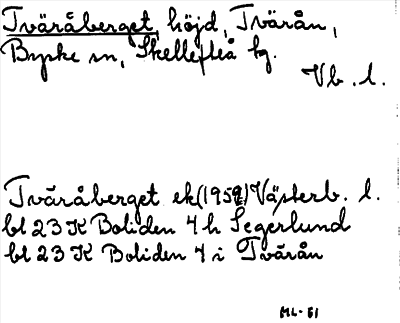 Tväråberget, höjd, Tvärån,
Byske sn, Skellefteå kg.
Vb. l.
Tväråberget ek (1959) Västerb. l.
bl 23 K Boliden 4 h Segerlund
bl 23 K Boliden 4 i Tvärån
ML-81